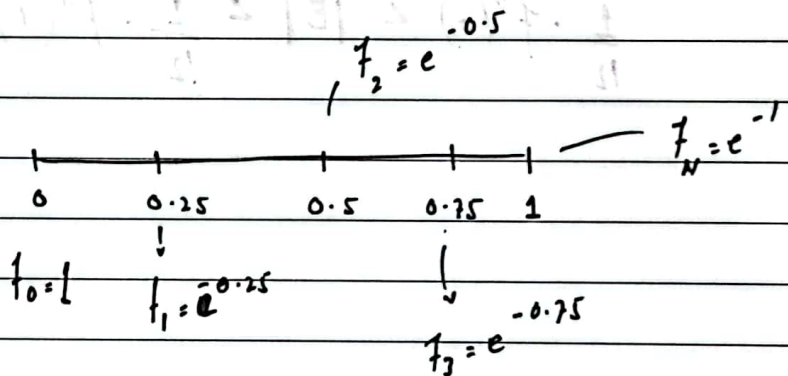 f₂ = e^-0.5
f_N = e^-1
0 0.25 0.5 0.75 1
f₀ = 1
f₁ = e^-0.25
f₃ = e^-0.75